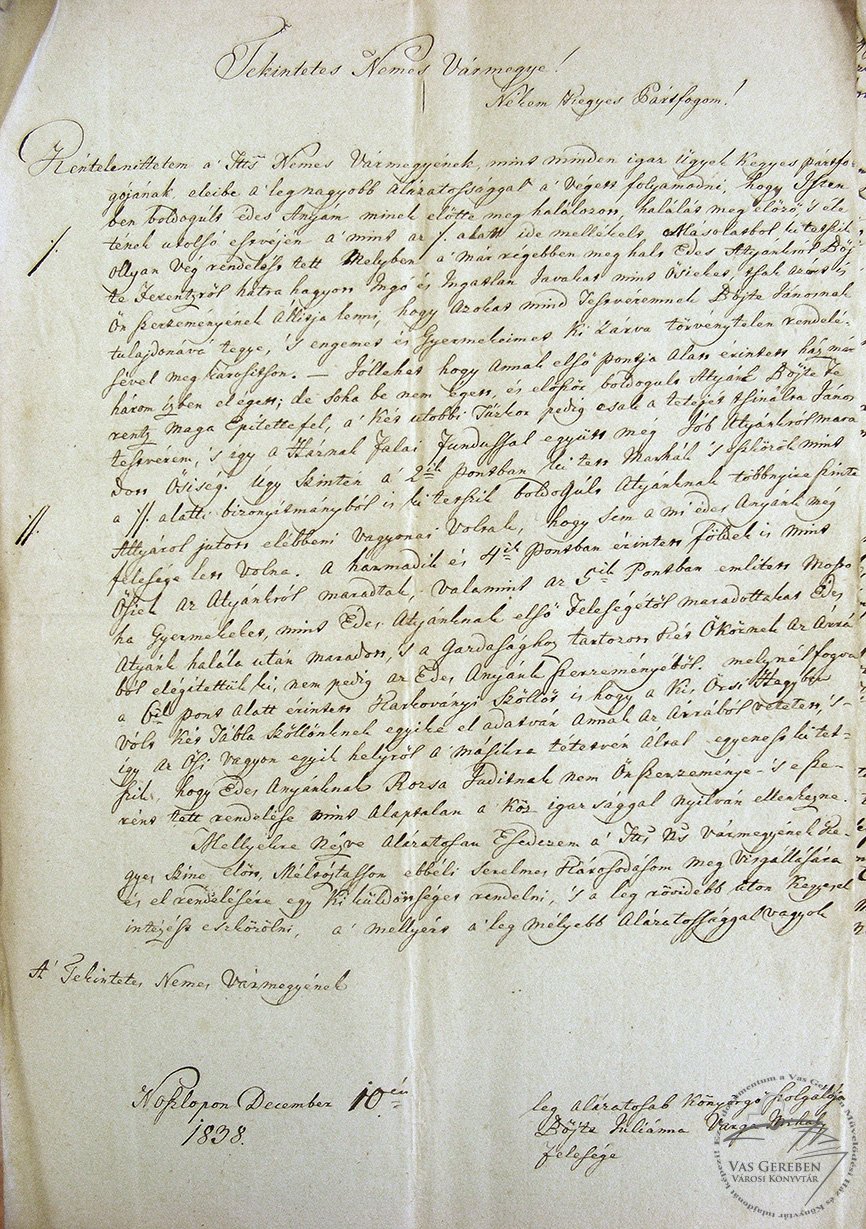 Tekintetes Nemes Vármegye!
Nékem Kegyes Pártfogom!
Kéntelenittetem a' Ttts Nemes Vármegyének, mint minden igaz ügyek kegyes pártfo-
gójának, eleibe a' legnagyobb Alázatossággal a' végett folyamodni, hogy Isten-
ben boldogult édes Anyám minek előtte meg halálozott, halálát meg előző, 's éle-
tének utolsó estvéjén a' mint az /. alatt ide mellékelt Másolatból ki tetszik
/.
ollyan Vég rendelést tett Melyben a' már régebben meg halt Édes Atyánkról Böj-
te Ferentzről hátra hagyott Ingó és Ingatlan Javakat mint Ősieket, tsak
Ön Szerzeményének állitja lenni, hogy Azokat mind Testvéremnek Böjte Jánosnak
tulajdonává tegye, 's engemet és Gyermekeimet Ki zárva törvénytelen rendelé-
sével meg kárositson. — Jóllehet hogy Annak első pontja Alatt érintett ház már
három izben elégett; de soha be nem égett, és először boldogult Atyánk Böjte Fe-
rentz Maga Epitettefel, a' két utobbi Tűzkor pedig csak a tetejét tsinálta János
testvérem, 's igy a Háznak falai fundussal együtt meg Jób Atyánkról mara-
dott Ősiség. Úgy szinten a 2ik pontban ki tett Marhák 's eszközök mint
//.
a //. alatti bizonyitmányból is ki tetszik boldogúlt Atyánknak többnyire szinte
Attyáról jutott elébbeni vagyonai Voltak, hogy sem a mi édes Anyánk meg
felesége lett volna. A harmadik és 4ik Pontban érintett földek is mint
Ősiek Az Atyánkról maradtak, valamint az 5ik Pontban emlitett Mosto-
ha Gyermekeket, mint Édes Atyánknak első Feleségétől maradottakat Édes
Atyánk halála után maradott, 's a Gazdasághoz tartozott két Ökörnek Az Árrá-
ból elégitettük ki, nem pedig az Édes Anyánk Szerzeményéből. melynél fogva
a 6ik pont Alatt érintett Harkoványi Szőllőt is hogy a Kis Őrsi Hegyben
vólt Két Tábla Szőllönknek egyike el adatván Annak Az Árrából vétetett, 's-
igy az Ősi Vagyon egyik helyről a' másikra tétetvén Által egyeness ki tet-
szik, hogy Édes Anyánknak Rozsa Juditnak nem Ön Szerzeménye - 's e sze-
rént tett rendelése mint Alaptalan a Köz igazsággal nyilván ellenkezne.
Mellyekre Nézve Alázatosan Esedezem a' Ttts Ns Vármegyének Ke-
gyes Szine Előtt, Méltóztasson ebbéli serelmes Károsodásom meg vizsgállására
és el rendelésére egy Ki küldöttséget rendelni, 's a leg rövidebb úton Kegyesel
intézést eszközölni, a' mellyért a' leg mélyebb Alázatossággal vagyok
A' Tekintetes Nemes Vármegyének
Noszlopon December 10én
1838.
leg alázatosab Könyörgő szolgálója
Böjte Juliánna Varga Mihály
felesége
VAS GEREBEN
VÁROSI KÖNYVTÁR